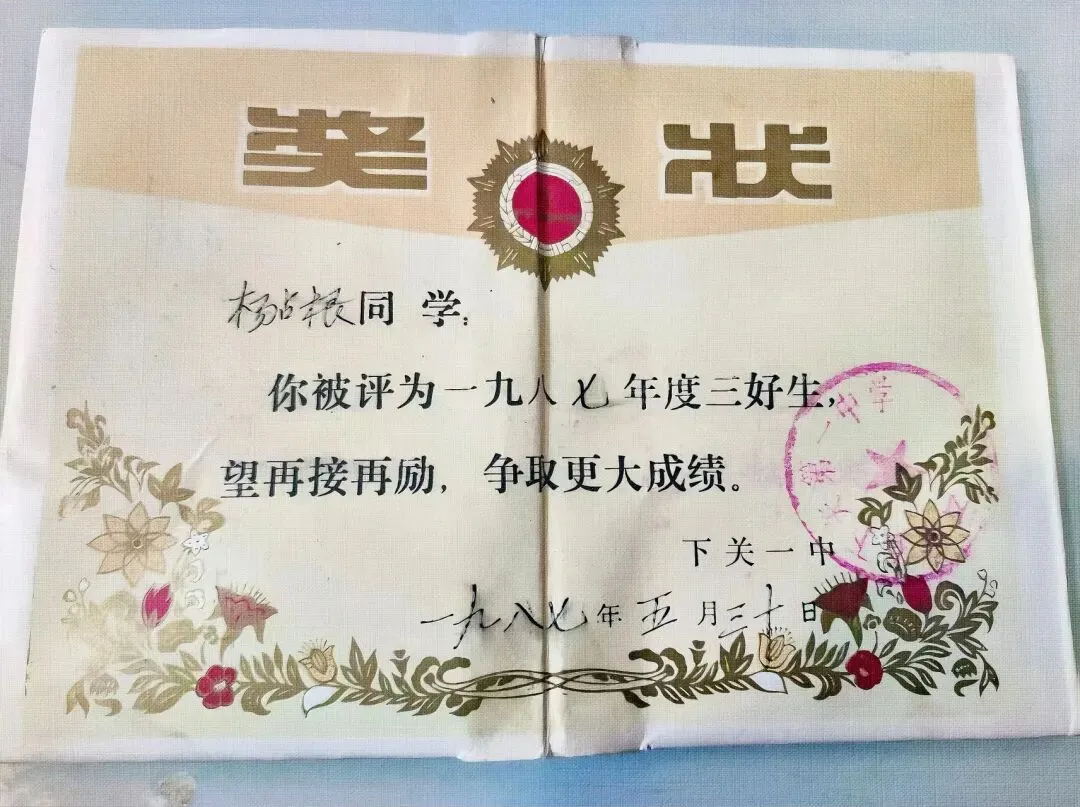 奖状
杨占根同学:
你被评为一九八七年度三好生,
望再接再励,争取更大成绩。
下关一中
一九八七年五月三十日
第一中学